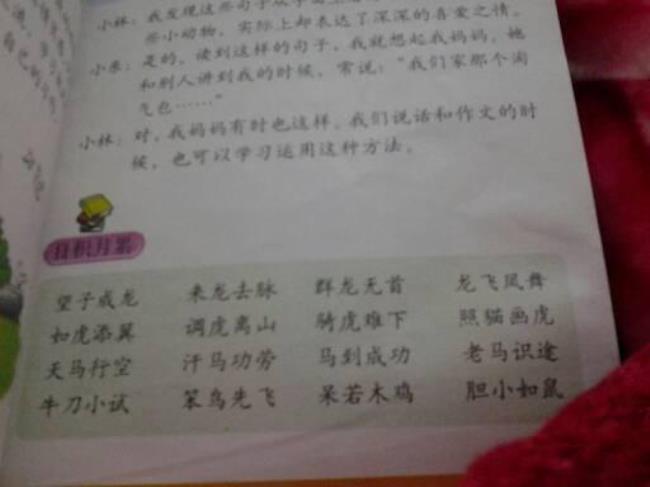 小林：我发现这些句子从字面上
些小动物，实际上却表达了深深的喜爱之情。
小东：是的，读到这样的句子，我就想起我妈妈，她
和别人讲到我的时候，常说：“我们家那个淘
气包……”
小林：对，我妈妈有时也这样。我们说话和作文的时
候，也可以学习运用这种方法。
日积月累
望子成龙 来龙去脉 群龙无首 龙飞凤舞
如虎添翼 调虎离山 骑虎难下 照猫画虎
天马行空 汗马功劳 马到成功 老马识途
牛刀小试 笨鸟先飞 呆若木鸡 胆小如鼠